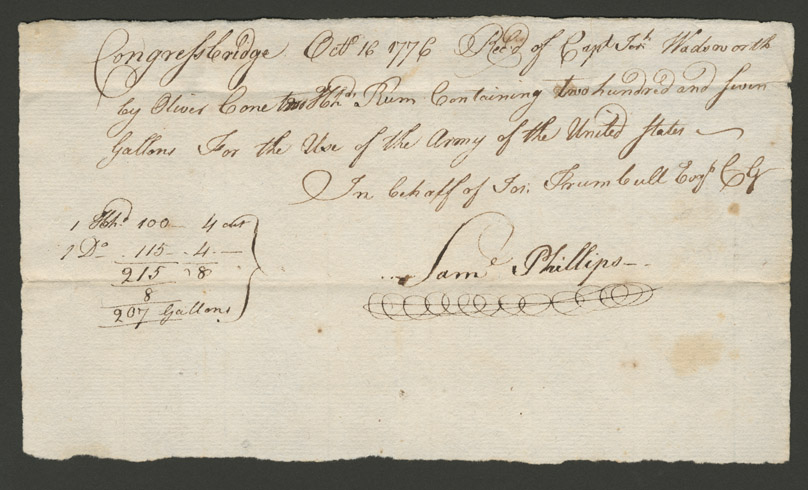 Congressbridge Octr 16 1776 Rec'd of Capt Josh Wadsworth
by Oliver Cone two Hhds Rum Containing two hundred and seven
Gallons For the Use of the Army of the United States
In behalf of Jos. Trumbull Esqr C G
1 Hhd 100 4 out
1 Do 115 .4
215 8
8
207 Gallons
Saml Phillips